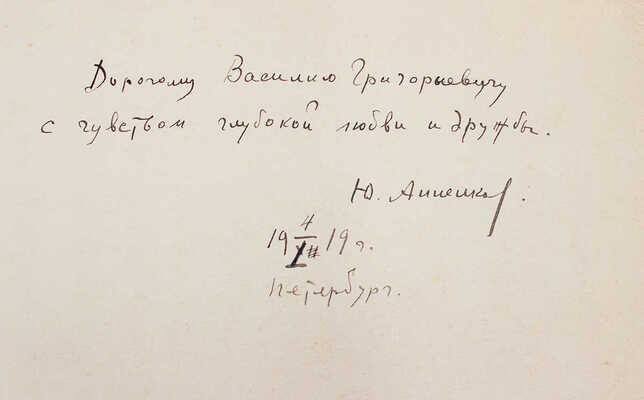 Дорогому Василию Григорьевичу
с чувством глубокой любви и дружбы.
Ю. Анненков.
19 4/XII 19 г.
Петербург.